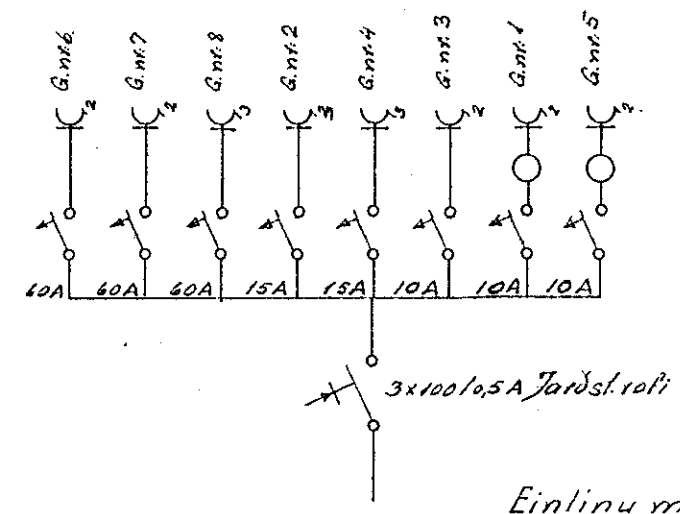 G.nr.6 G.nr.7 G.nr.8 G.nr.2 G.nr.4 G.nr.3 G.nr.1 G.nr.5
2 2 3 3 3 2 2 2
60A 60A 60A 15A 15A 10A 10A 10A
3x100/0,5A Jarðst.rofi
Einlinu m